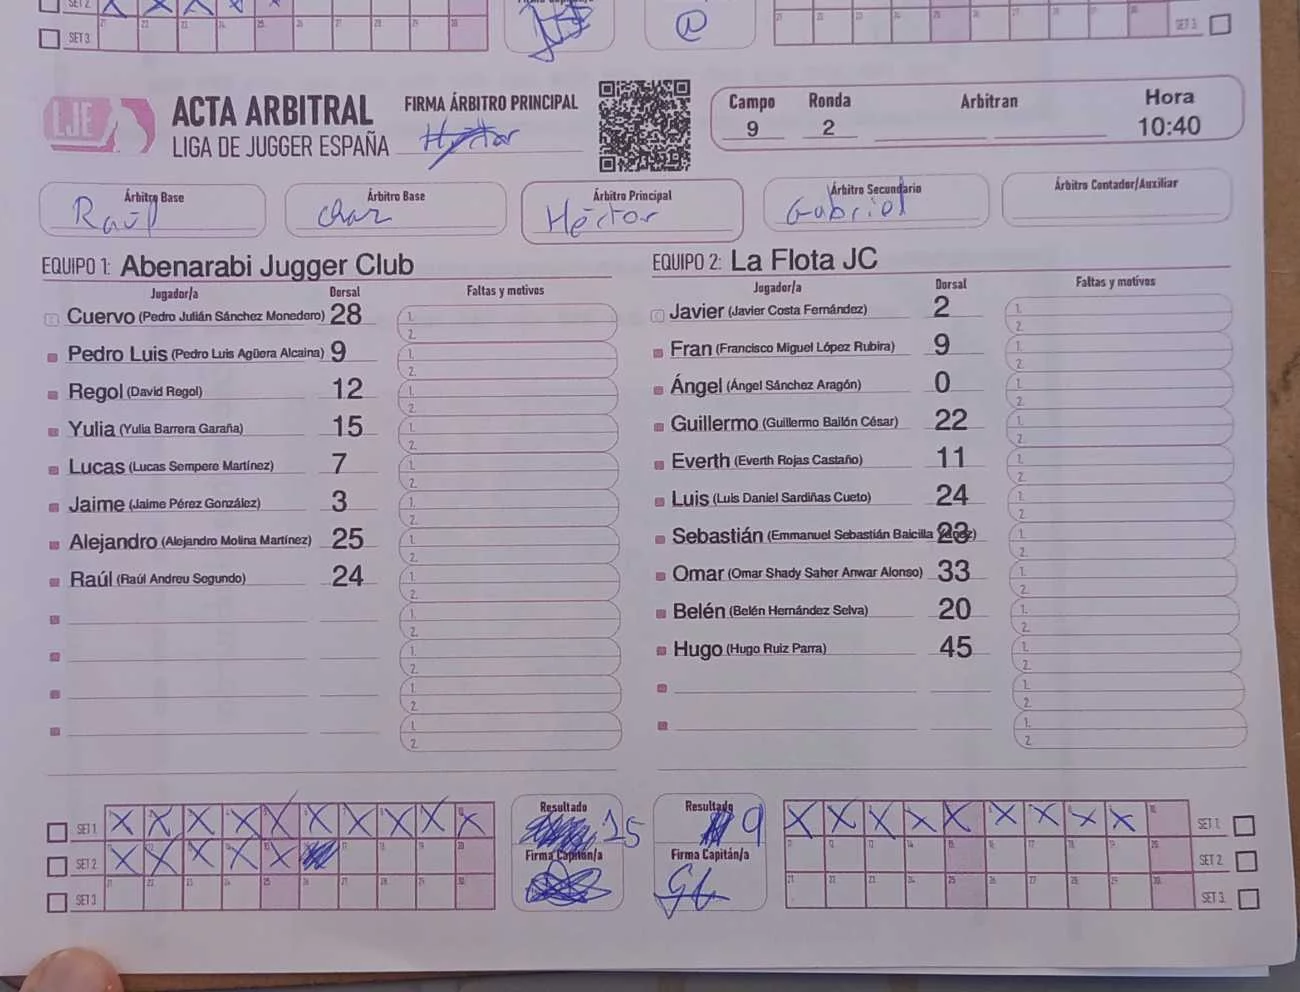 SET 2
SET 3
21 22 23 24 25 26 27 28 29 30
@
21 22 23 24 25 26 27 28 29 30
SET 3
LJE
ACTA ARBITRAL
LIGA DE JUGGER ESPAÑA
FIRMA ÁRBITRO PRINCIPAL
Héctor
Campo Ronda Arbitran Hora
9 2 10:40
Árbitro Base
Raúl
Árbitro Base
Char
Árbitro Principal
Héctor
Árbitro Secundario
Gabriel
Árbitro Contador/Auxiliar
EQUIPO 1: Abenarabi Jugger Club
Jugador/a Dorsal Faltas y motivos
Cuervo (Pedro Julián Sánchez Monedero) 28 1. 2.
Pedro Luis (Pedro Luis Agüera Alcaina) 9 1. 2.
Regol (David Regol) 12 1. 2.
Yulia (Yulia Barrera Garaña) 15 1. 2.
Lucas (Lucas Sempere Martínez) 7 1. 2.
Jaime (Jaime Pérez González) 3 1. 2.
Alejandro (Alejandro Molina Martínez) 25 1. 2.
Raúl (Raúl Andreu Segundo) 24 1. 2.
1. 2.
1. 2.
1. 2.
1. 2.
EQUIPO 2: La Flota JC
Jugador/a Dorsal Faltas y motivos
Javier (Javier Costa Fernández) 2 1. 2.
Fran (Francisco Miguel López Rubira) 9 1. 2.
Ángel (Ángel Sánchez Aragón) 0 1. 2.
Guillermo (Guillermo Bailón César) 22 1. 2.
Everth (Everth Rojas Castaño) 11 1. 2.
Luis (Luis Daniel Sardiñas Cueto) 24 1. 2.
Sebastián (Emmanuel Sebastián Balcilla 23 1. 2.
Omar (Omar Shady Saher Anwar Alonso) 33 1. 2.
Belén (Belén Hernández Selva) 20 1. 2.
Hugo (Hugo Ruiz Parra) 45 1. 2.
1. 2.
1. 2.
SET 1 X X X X X X X X X X
SET 2 X X X X X 17 18 19 20
SET 3 21 22 23 24 25 26 27 28 29 30
Resultado
15
Firma Capitán/a
Resultado
9
Firma Capitán/a
X X X X X X X X X 10 SET 1
11 12 13 14 15 16 17 18 19 20 SET 2
21 22 23 24 25 26 27 28 29 30 SET 3